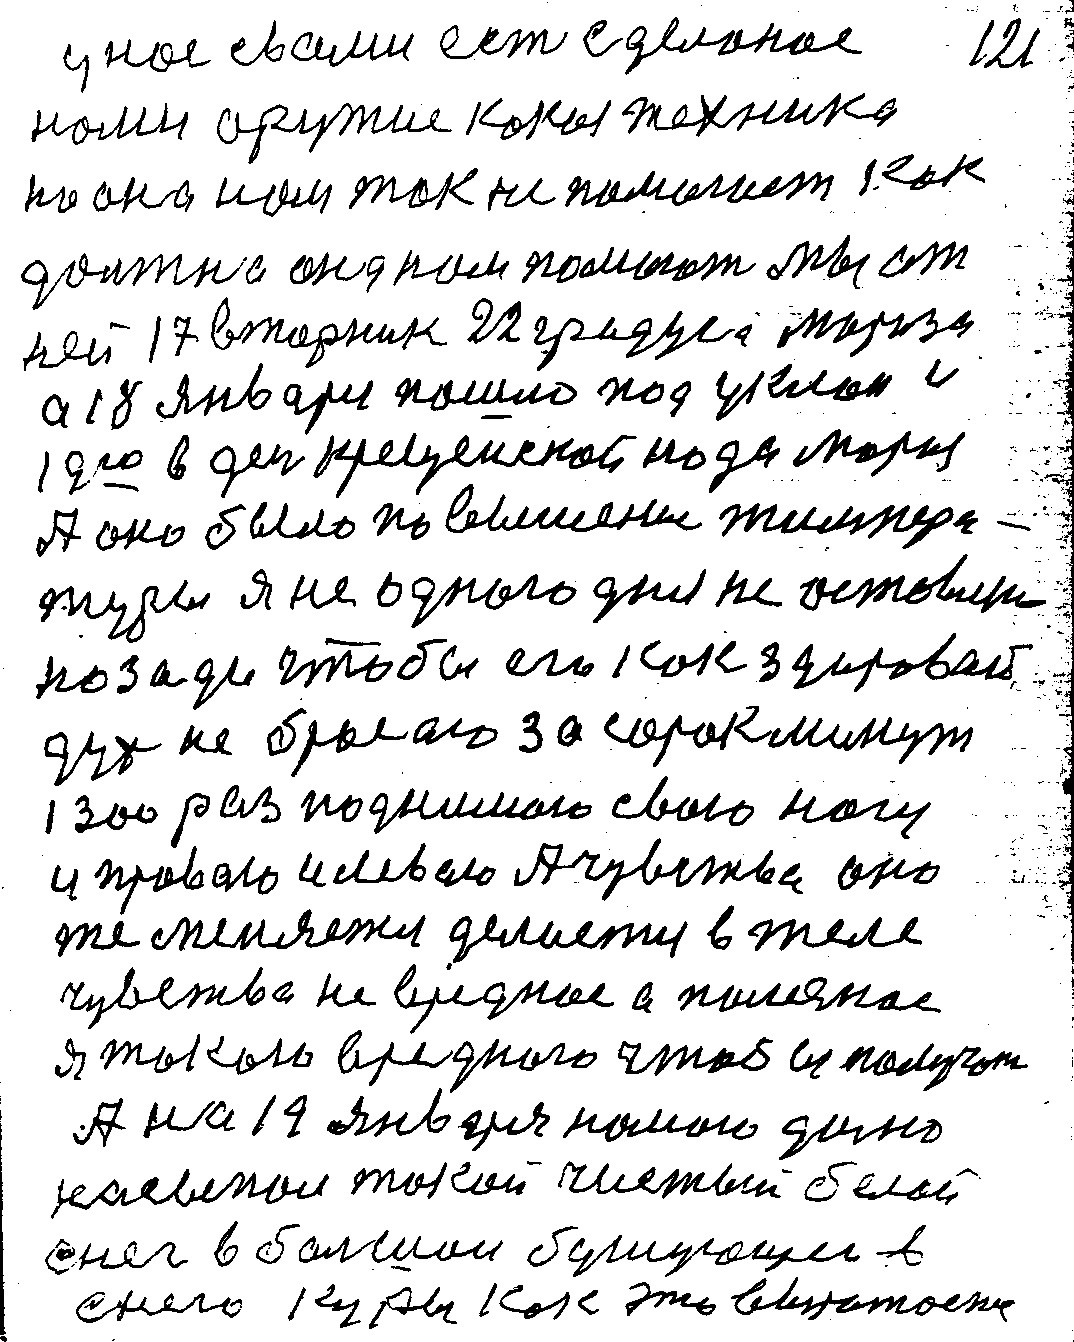 у нас свами ест сделоное 121
нами оружие кокая техника
но она нам ток не помогает как
должна она нам помогат мы от
ней 17 вторник 22 градуса мороза
а 18 января пошло под уклон и
19го в ден крещенской вода мороз
А оно было повышение темпера-
туры я не одного дня не оставляю
позади чтобы его как здоровай
дух не бросаю за сорок минут
1300 раз поднимаю свою ногу
и праваю и леваю А чувства оно
же меняется делается в теле
чувства не вредное а полезное
я токого вредного чтобы получат
А на 19 января намого давно
такой чистый белой
снег в болшой бушующей в
снего куры как это